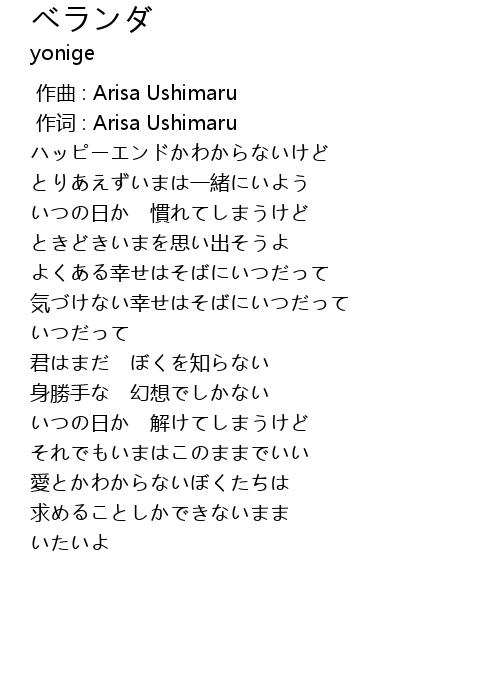 ベランダ
yonige
作曲 : Arisa Ushimaru
作词 : Arisa Ushimaru
ハッピーエンドかわからないけど
とりあえずいまは一緒にいよう
いつの日か　慣れてしまうけど
ときどきいまを思い出そうよ
よくある幸せはそばにいつだって
気づけない幸せはそばにいつだって
いつだって
君はまだ　ぼくを知らない
身勝手な　幻想でしかない
いつの日か　解けてしまうけど
それでもいまはこのままでいい
愛とかわからないぼくたちは
求めることしかできないまま
いたいよ